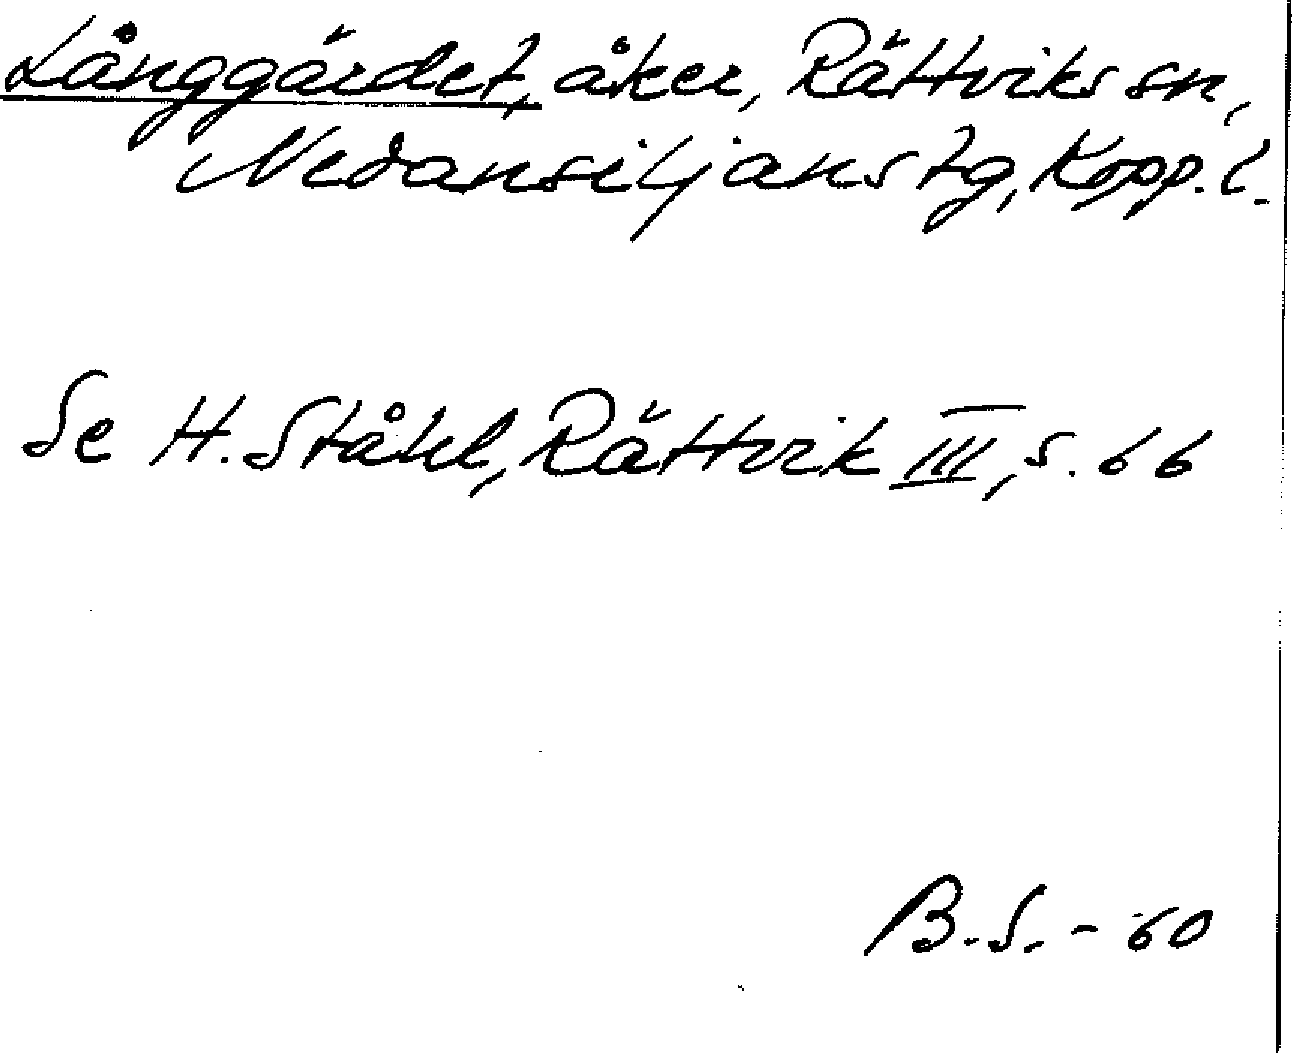 Långgärdet, åker, Rättviks sn,
Nedansiljans tg, Kopp. l.
Se H. Ståhl, Rättvik III, s. 66
B.S. - 60